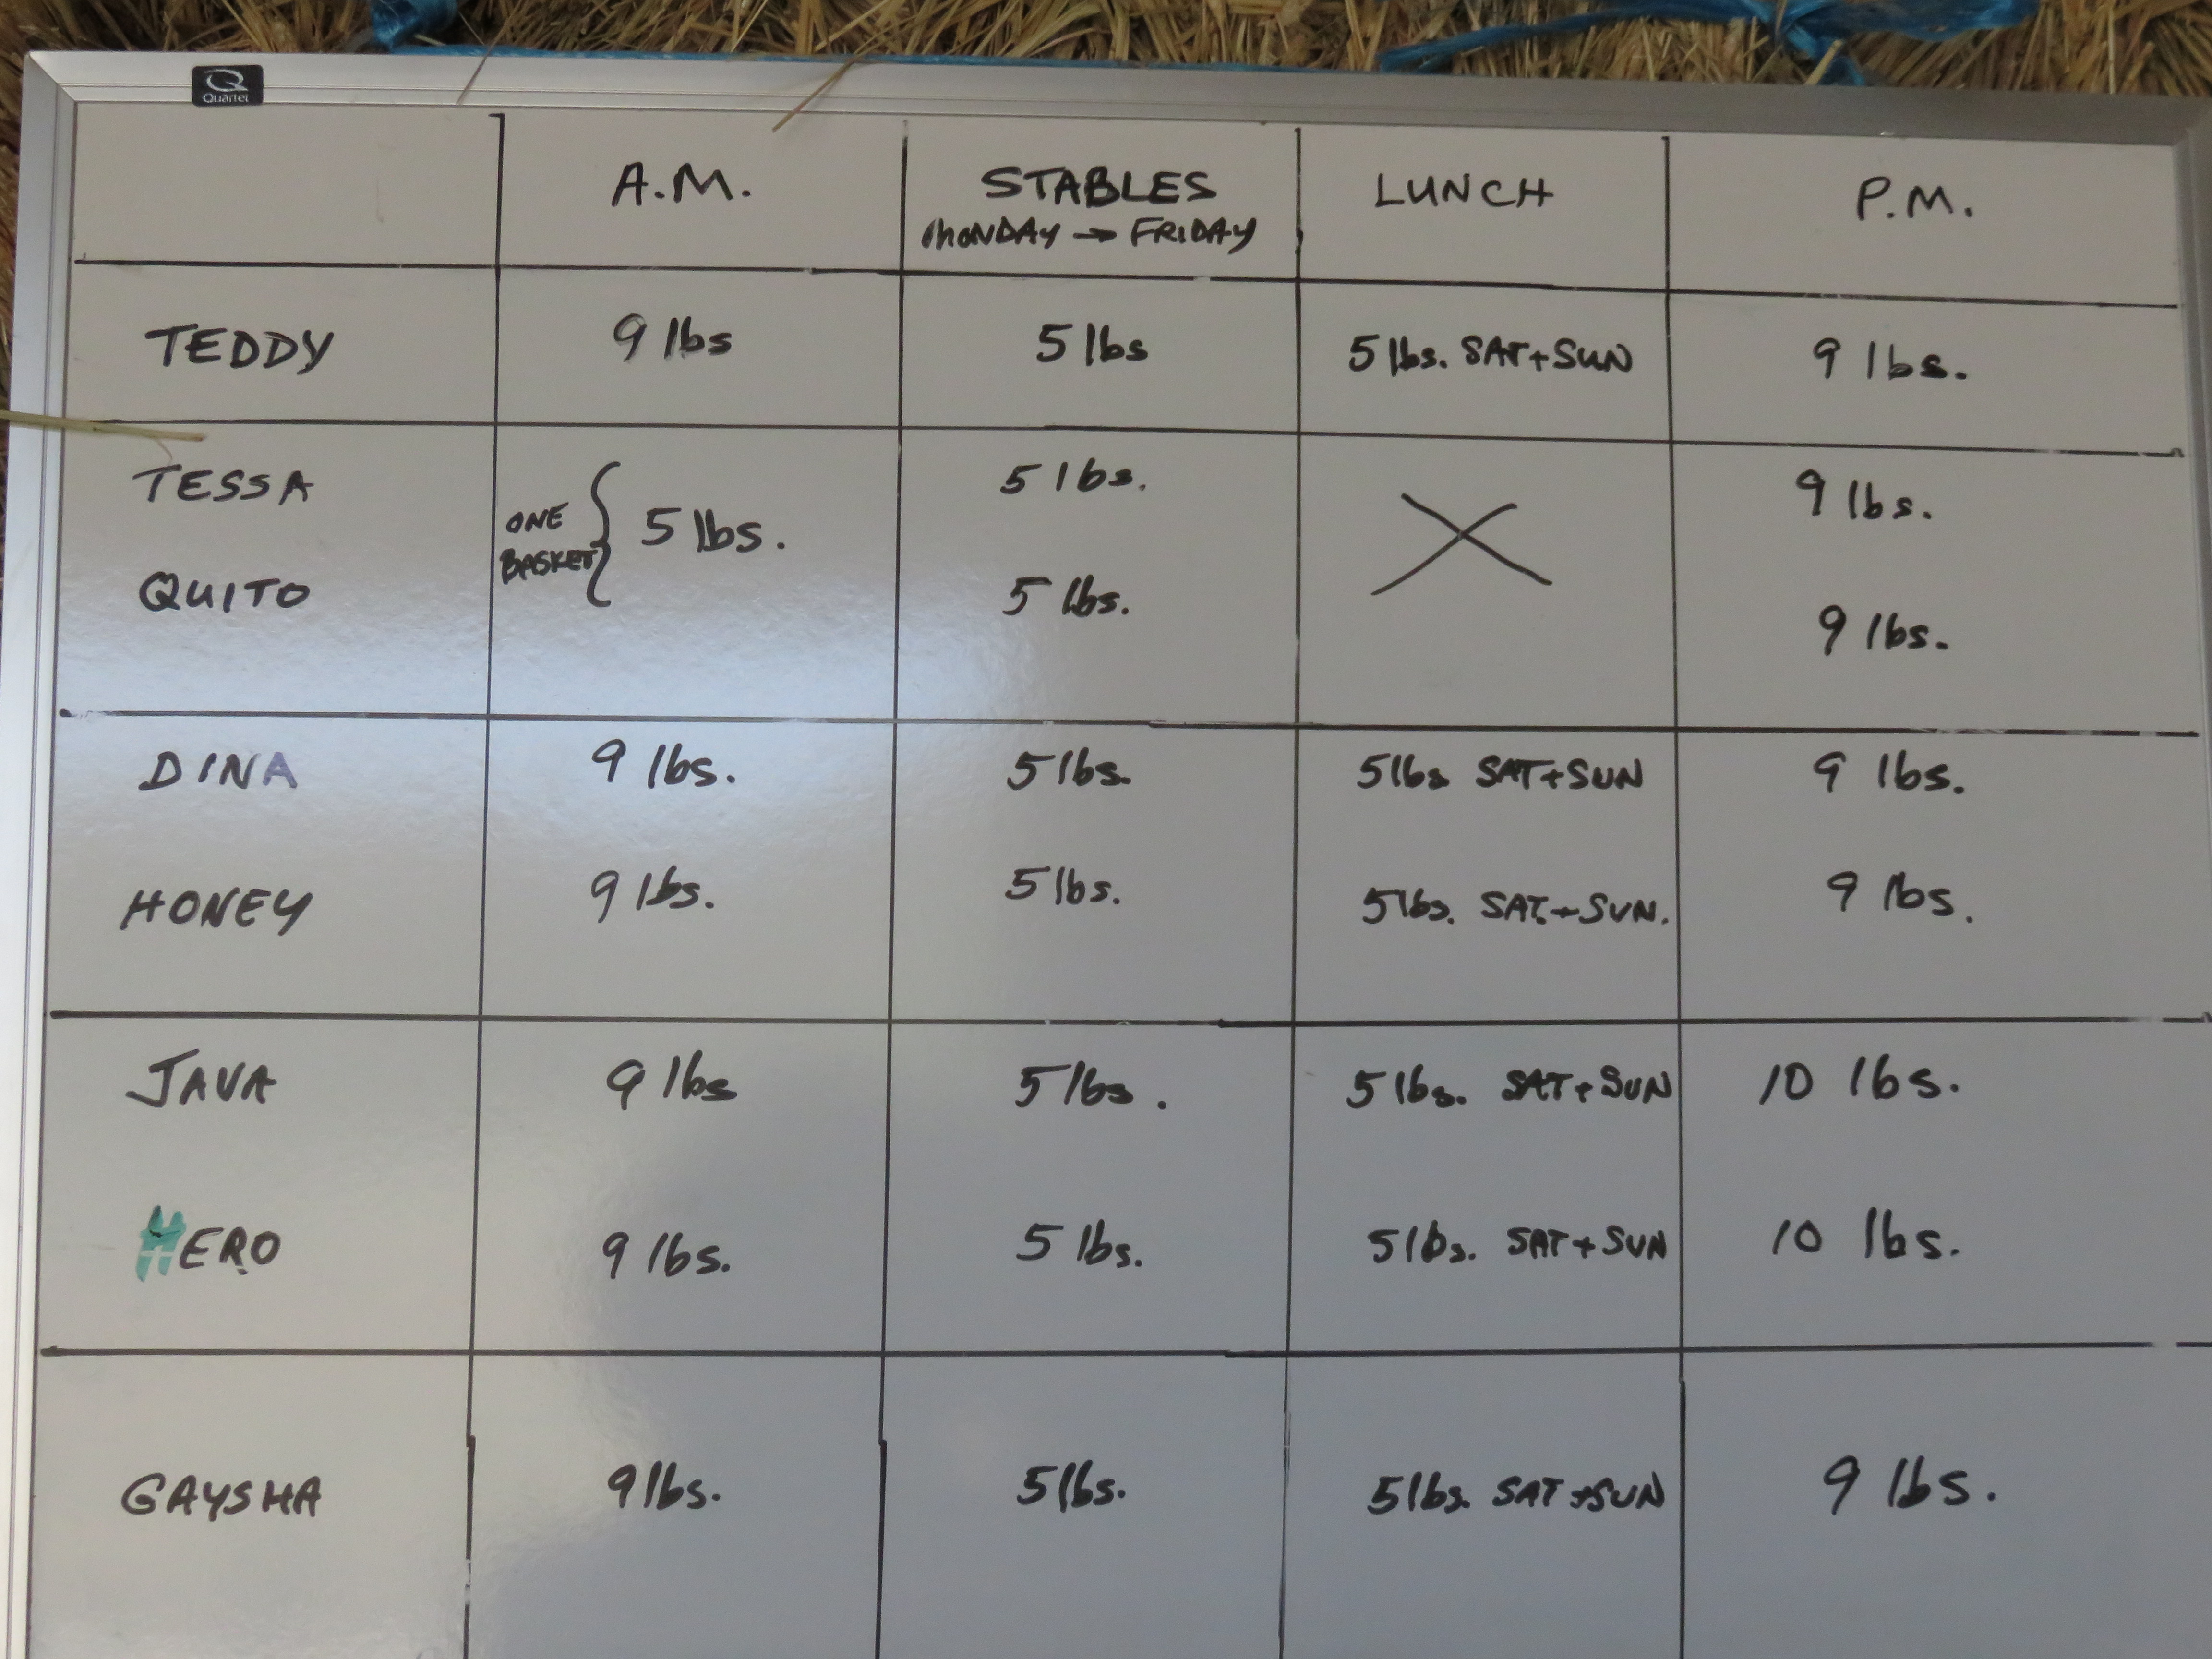 Quartet
A.M. STABLES LUNCH P.M.
MONDAY → FRIDAY
TEDDY 9 lbs 5 lbs 5 lbs. SAT+SUN 9 lbs.
TESSA 5 lbs. 9 lbs.
ONE BASKET { 5 lbs.
QUITO 5 lbs. 9 lbs.
DINA 9 lbs. 5 lbs. 5 lbs SAT+SUN 9 lbs.
HONEY 9 lbs. 5 lbs. 5 lbs. SAT.+SUN. 9 lbs.
JAVA 9 lbs 5 lbs. 5 lbs. SAT+SUN 10 lbs.
HERO 9 lbs. 5 lbs. 5 lbs. SAT+SUN 10 lbs.
GAYSHA 9 lbs. 5 lbs. 5 lbs. SAT+SUN 9 lbs.